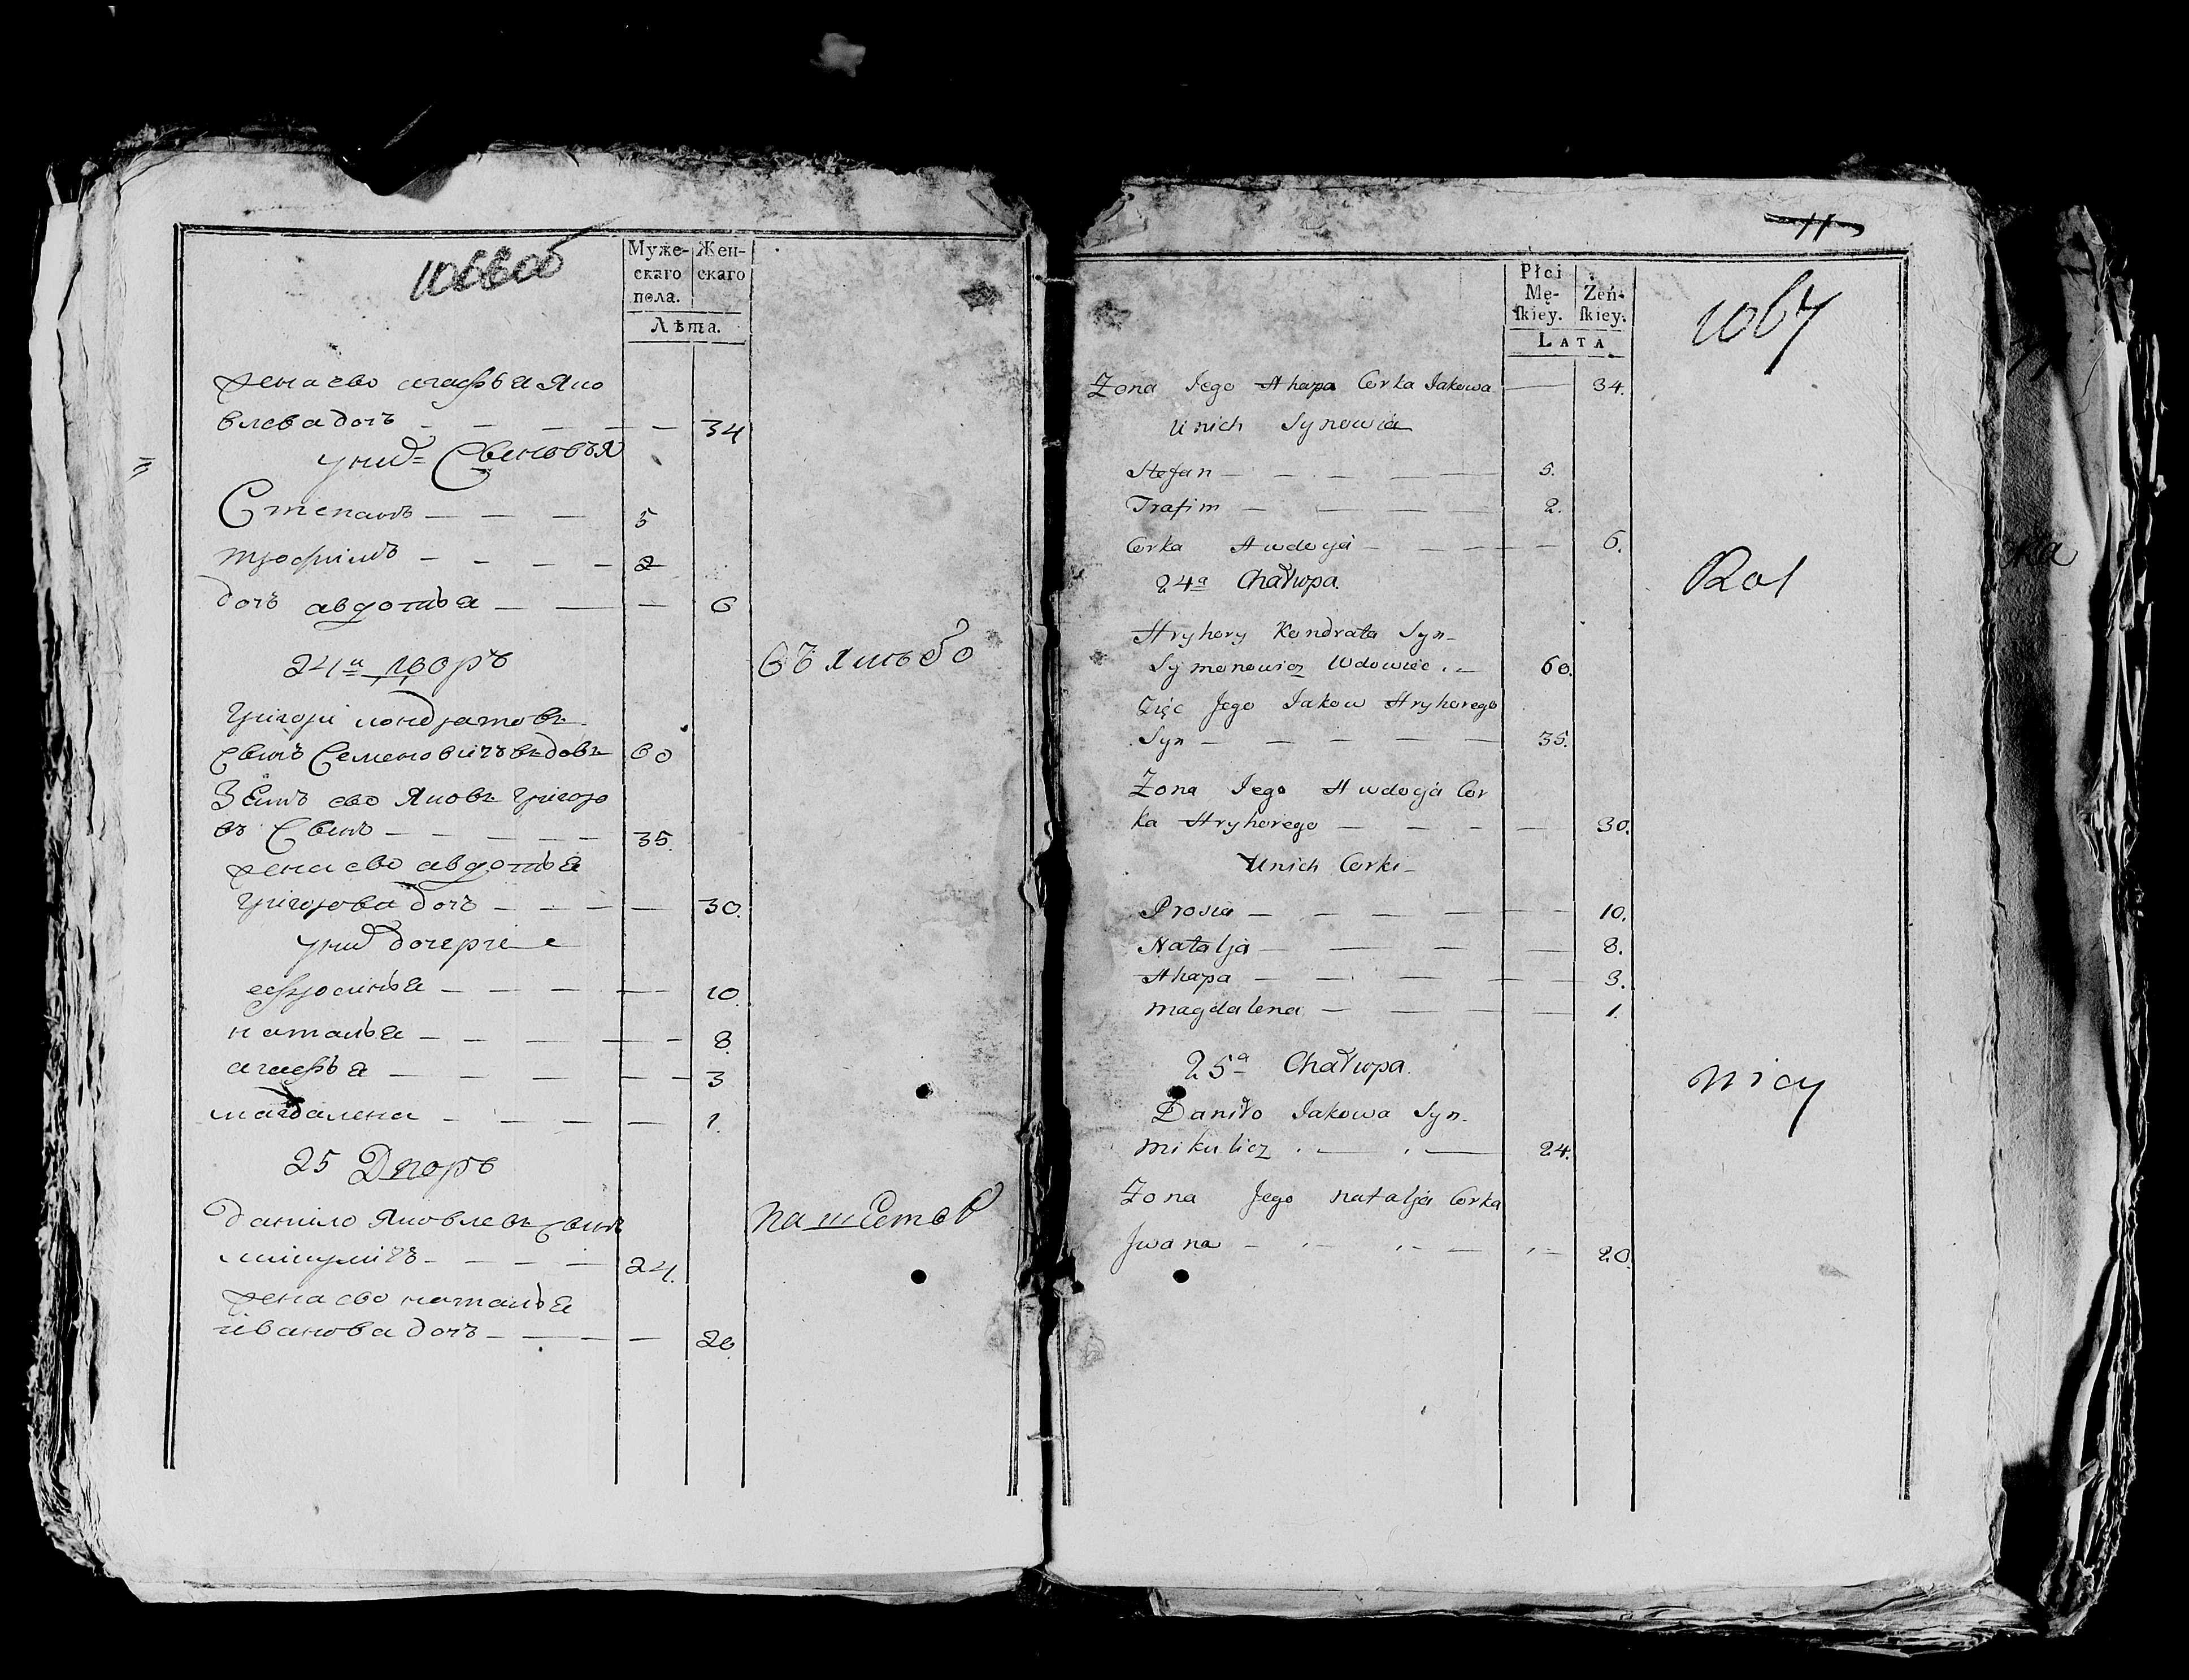 1066об
Муже-
скаго
пола.
Жен-
скаго
Лѣта.
жена ево агафья Яко
влева дочь 34
у них Сыновья
Степанъ 5
трофимъ 2
дочь авдотья 6
24й Дворъ
Григори кондратовъ
Сынъ Семеновичъ вдовъ 60
Зять ево Яковъ Григоро
въ Сынъ 35.
жена ево авдотья
Григорова дочь 30.
у них дочерие
ефросинья 10.
наталья 8.
агафья 3
магдалена 1.
25 Дворъ
данило Яковлевъ Сынъ
микуличъ 24.
жена ево наталья
иванова дочь 20.
11
1067
Płci
Mę-
ſkiey.
Żeń-
ſkiey.
LATA
Zona Jego Ahapa Corka Jakowa 34.
Unich Synowia
Stefan 5.
Trafim 2.
Corka Awdocja 6.
24a Chałupa.
Hryhory Kondrata Syn
Symonowicz Wdowiec 60.
Zięc Jego Jakow Hryhorego
Syn 35.
Zona Jego Awdocja Cor
ka Hryhorego 30.
Unich Corki
Prosia 10.
Natalja 8.
Ahapa 3.
Magdalena 1.
25a Chałupa.
Daniło Jakowa Syn
Mikulicz 24.
Zona Jego Natalja Corka
Jwana 20.
Rol
nicy